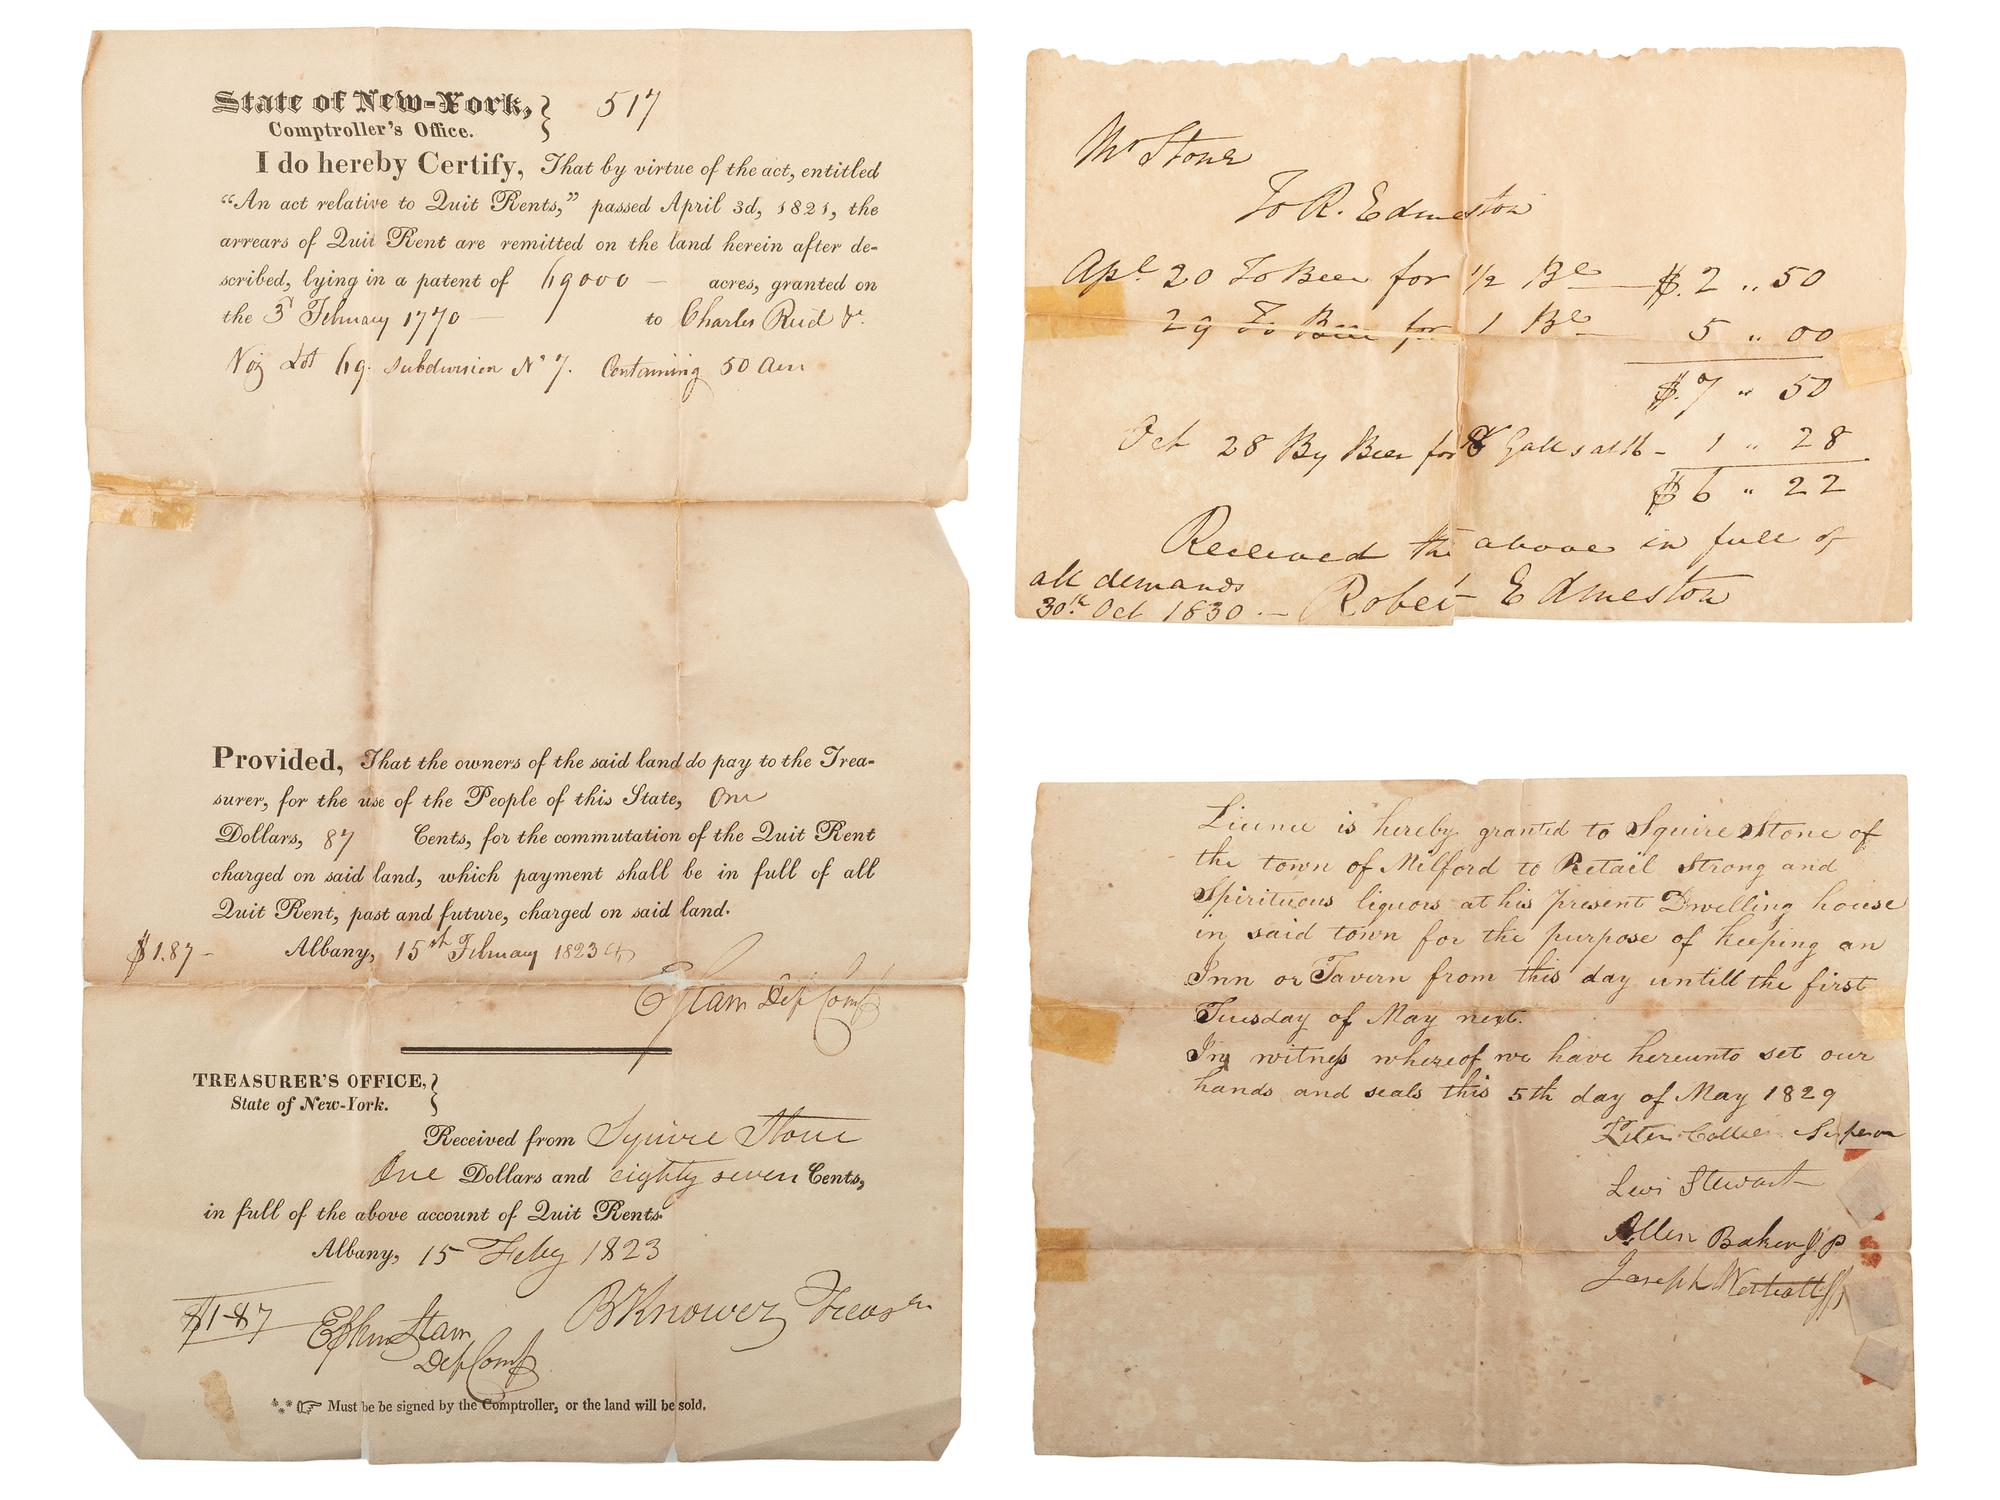 State of New-York, 517
Comptroller's Office.
I do hereby Certify, That by virtue of the act, entitled
"An act relative to Quit Rents," passed April 3d, 1821, the
arrears of Quit Rent are remitted on the land herein after de-
scribed, lying in a patent of 69000 — acres, granted on
the 3d February 1770 — to Charles Reid &c
Viz Lot 69. Subdivision No 7. Containing 50 Acres
Provided, That the owners of the said land do pay to the Trea-
surer, for the use of the People of this State, One
Dollars, 87 Cents, for the commutation of the Quit Rent
charged on said land, which payment shall be in full of all
Quit Rent, past and future, charged on said land.
$1.87 - Albany, 15st February 1823
Ephm Starr Dep Compt
TREASURER'S OFFICE,
State of New-York.
Received from Squire Stone
One Dollars and eighty seven Cents,
in full of the above account of Quit Rents.
Albany, 15 Feby 1823
$1-87 Ephm Starr B Knower Treasr
Dep Compt
Must be be signed by the Comptroller, or the land will be sold.
Mr Stone
To R. Edmeston
Apl 20 To Beer for 1/2 Bl — $.2 .. 50
29 To Beer for 1 Bl 5 .. 00
$.7 .. 50
Oct 28 By Beer for 8 Galls at 16 - 1 .. 28
$6 .. 22
Received the above in full of
all demands
30th Oct 1830. — Robert Edmeston
Licence is hereby granted to Squire Stone of
the town of Milford to Retail Strong and
Spirituous liquors at his present Dwelling house
in said town for the purpose of keeping an
Inn or Tavern from this day untill the first
Tuesday of May next.
In witness whereof we have hereunto set our
hands and seals this 5th day of May 1829
Peter Collier
Levi Stewart
Allen Baker J. P
Joseph Westcott